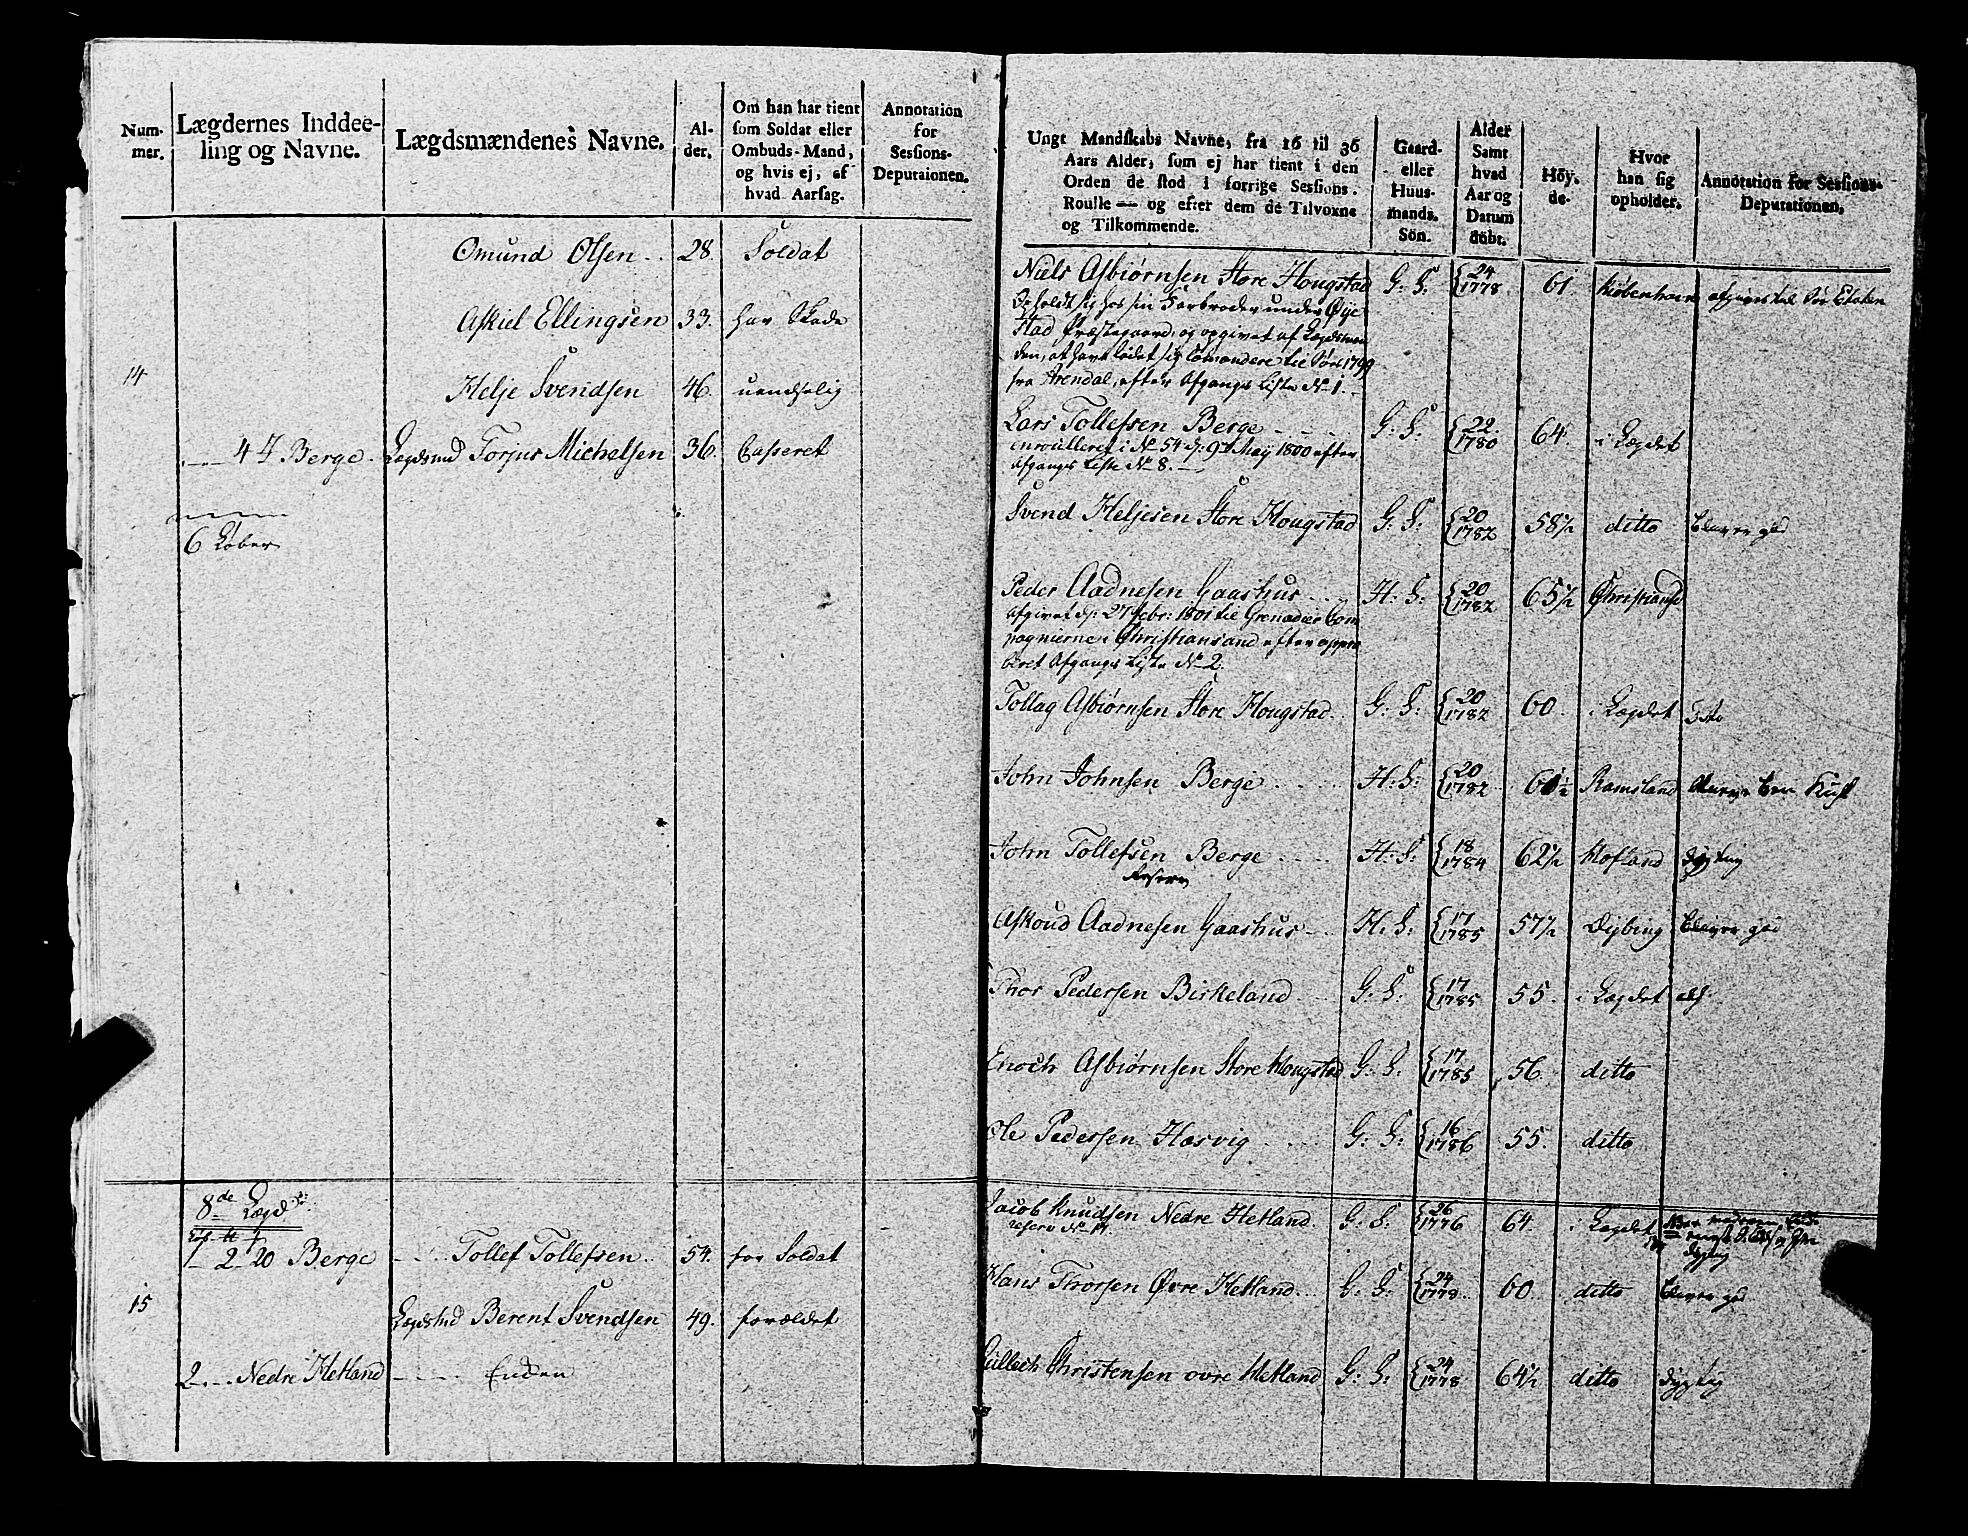 Num-
mer.
Lægdernes Inddee-
ling og Navne.
Lægdsmændenes Navne.
Al-
der.
Om han har tient
som Soldat eller
Ombuds-Mand,
og hvis ej, af
hvad Aarsag.
Annotation
for
Sessions-
Deputaionen.
Omund Olsen 28. Soldat
Askiel Ellingsen 33. har Skade
14
Helje Svendsen 46. uandselig
4 Berge. Lægdsmd Torjus Michelsen 36. Casseret
6 Løber
8de Lægd
1 2 20 Berge Tollef Tollefsen 54. for Soldat
15
Lægdsmd Berent Svendsen 49. foræeldet
2 Nedre Hetland Enken
Ungt Mandskabs Navne, fra 16 til 36
Aars Alder, som ej har tient i den
Orden de stod i forrige Sessions-
Roulle — og efter dem de Tilvoxne
og Tilkommende.
Gaard-
eller
Huus-
mands-
Sön.
Alder
Samt
hvad
Aar og
Datum
döbt.
Höy-
de.
Hvor
han sig
opholder.
Annotation for Sessions-
Deputationen.
Niels Asbiørnsen Store Hougstad G: S: 24 1778 61 Kiøbenhavn
Opholdt sig hos sin Farbroder under Øye
stad Præstegaard, og opgivet af Lægdsman
den, at have ladet sig Comandere til Søes 1799
fra Arendal, efter Afgangs Liste No 1.
Lars Tollefsen Berge G: S: 22. 1780 64 i Lægdet
enroulleret i No 54 d: 9de May 1800 efter
Afgangs Liste No 8.
Svend Heljesen Store Hougstad G: S: 20 1782 58½ ditto
Peder Aadnesen Gaashus H: S: 20 1782 65½ Christiansd
Afgivet d: 27 Febr: 1801 til Grenadeer Com
pagnierne i Christiansand efter appro
beret Afgangs Liste No 2.
Tollag Asbiørnsen Store Hougstad G: S: 20 1782 60 i Lægdet
John Johnsen Berge H: S: 20 1782 60½ Ramsland
John Tollefsen Berge H: S: 18 1784 62½ Hofland dygtig
Reserve
Askoud Aadnesen Gaashus H. S: 17 1785 57½ Dybing
Thor Pedersen Birkeland G: S: 17 1785 55. i Lægdet
Enoch Asbiørnsen Store Hougstad G: S: 17 1785 56. ditto
Ole Pedersen Hæsvig G: S: 16 1786 55. ditto
Jacob Knudsen Nedre Hetland. G: S: 26 1776 64. i Lægdet
Reserv No 14. dygtig
Hans Thorsen Øvre Hetland G: S: 24 1778 60 ditto
Gullach Christensen ovre Hetland G: S: 24 1778 64½ ditto dygtig